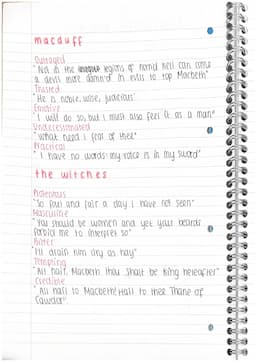 macduff
Outraged
"Not in the regions of horrid hell can come
a devil more damn'd in evils to top Macbeth"
Trusted
"He is noble, wise, judicious"
Emotive
"I will do so, but I must also feel it as a man"
Underestimated
"What need I fear of thee"
Practical
"I have no words: my voice is in my sword"
the witches
"So foul and fair a day I have not seen"
Masculine
"You should be women and yet your beards
forbid me to interpret so"
Bitter
"I'll drain him dry as hay"
Tempting
"All hail, Macbeth thou shalt be king hereafter"
Credible
"All hail to Macbeth! Hail to thee Thane of
Cawdor"